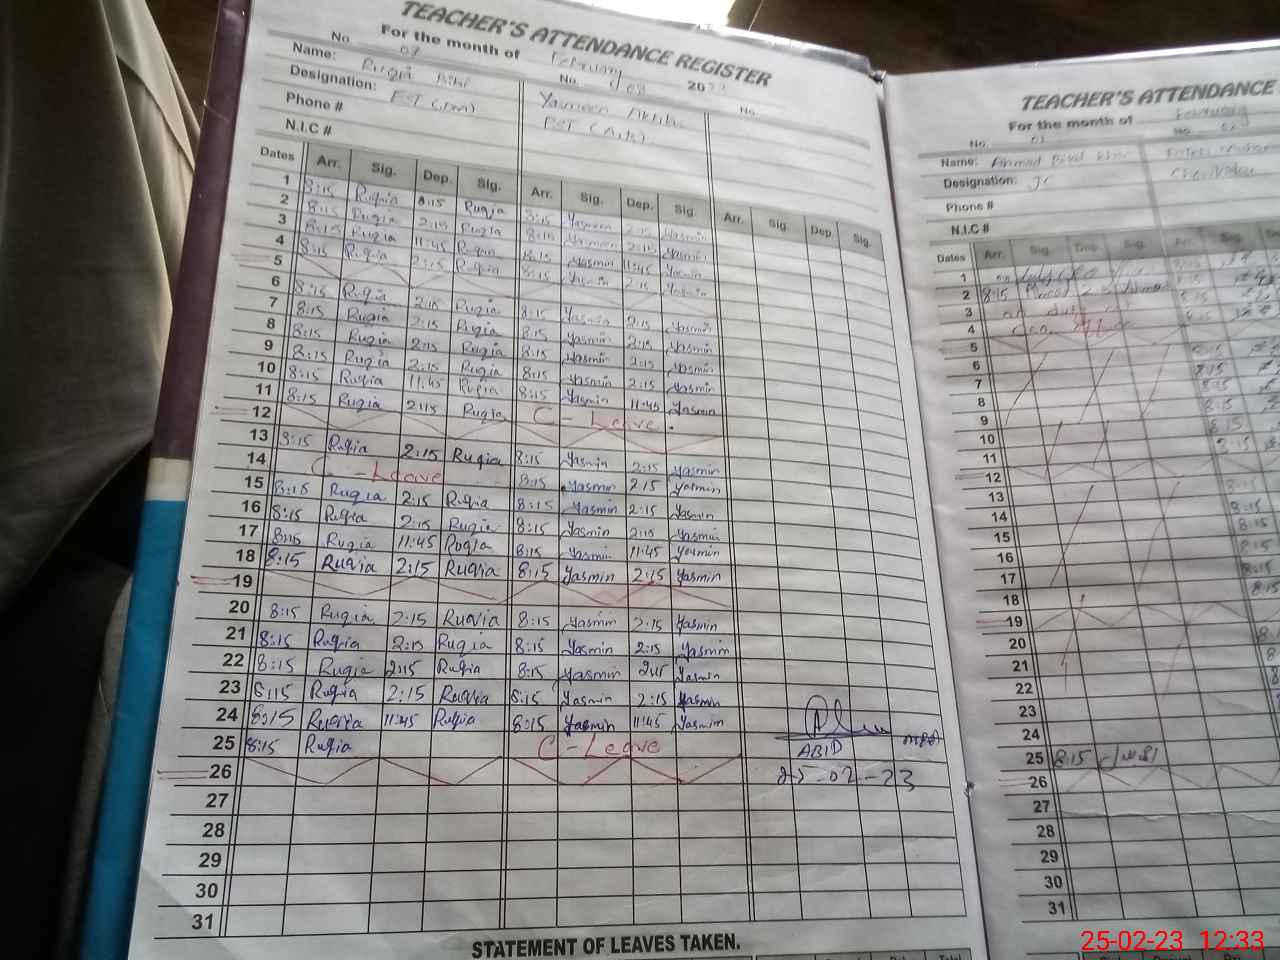 TEACHER'S ATTENDANCE REGISTER
For the month of February 2023
No. 07 No. 08 No.
Name: Ruqia Bibi Yasmeen Akhtar
Designation: PST (A.A)
Phone #
N.I.C #
Dates Arr. Sig. Dep. Sig. Arr. Sig. Dep. Sig. Arr. Sig. Dep. Sig.
1 8:15 Ruqia Ruqia 8:15 Yasmeen 2:15 Yasmin
2 8:15 Ruqia 2:15 Ruqia 8:15 Yasmeen 2:15 Yasmin
3 8:15 Ruqia 11:45 Ruqia 8:15 Yasmin 11:45 Yasmin
4 8:15 Ruqia 2:15 Ruqia 8:15 Yasmin 2:15 Yasmin
5
6 8:15 Ruqia 2:15 Ruqia 8:15 Yasmin 2:15 Yasmin
7 8:15 Ruqia 2:15 Ruqia 8:15 Yasmin 2:15 Yasmin
8 8:15 Ruqia 2:15 Ruqia 8:15 Yasmin 2:15 Yasmin
9 8:15 Ruqia 2:15 Ruqia 8:15 Yasmin 2:15 Yasmin
10 8:15 Ruqia 11:45 Ruqia 8:15 Yasmin 11:45 Yasmin
11 8:15 Ruqia 2:15 Ruqia C - Leave.
12
13 8:15 Ruqia 2:15 Ruqia 8:15 Yasmin 2:15 Yasmin
14 C - Leave 8:15 Yasmin 2:15 Yasmin
15 8:15 Ruqia 2:15 Ruqia 8:15 Yasmin 2:15 Yasmin
16 8:15 Ruqia 2:15 Ruqia 8:15 Yasmin 2:15 Yasmin
17 8:15 Ruqia 11:45 Ruqia 8:15 Yasmin 11:45 Yasmin
18 8:15 Ruqia 2:15 Ruqia 8:15 Yasmin 2:15 Yasmin
19
20 8:15 Ruqia 2:15 Ruqia 8:15 Yasmin 2:15 Yasmin
21 8:15 Ruqia 2:15 Ruqia 8:15 Yasmin 2:15 Yasmin
22 8:15 Ruqia 2:15 Ruqia 8:15 Yasmin 2:15 Yasmin
23 8:15 Ruqia 2:15 Ruqia 8:15 Yasmin 2:15 Yasmin
24 8:15 Ruqia 11:45 Ruqia 8:15 Yasmin 11:45 Yasmin
25 8:15 Ruqia C - Leave ABID
26 25-02-23
27
28
29
30
31
STATEMENT OF LEAVES TAKEN.
TEACHER'S ATTENDANCE
For the month of February
No. 01 No. 02
Name: Ahmad
Designation:
Phone #
N.I.C #
Dates Arr. Sig. Dep. Sig. Arr. Sig.
1
2 8:15
3 on duty
4
5
6
7 8:15
8 8:15
9 8:15
10 2:15
11
12
13
14 8:15
15 8:15
16 8:15
17 8:15
18 8:15
19
20
21
22
23
24
25 8:15
26
27
28
29
30
31
25-02-23 12:33